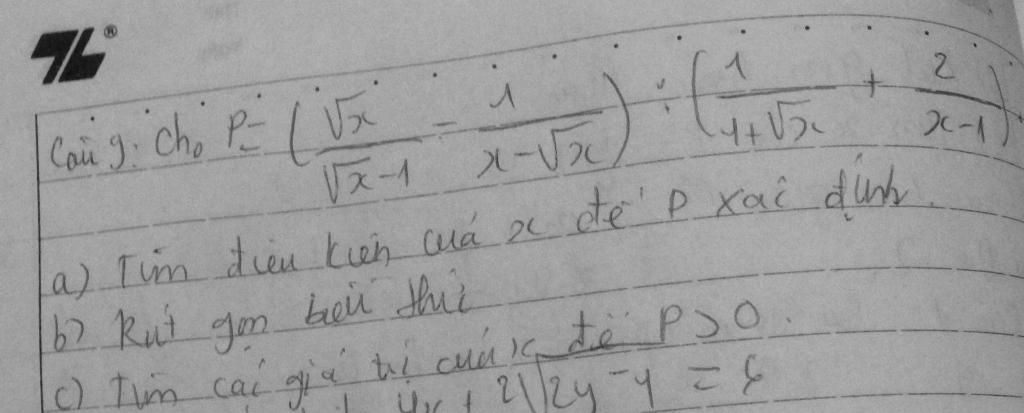 Câu 9: Cho P = (√x/(√x-1) - 1/(x-√x)) : (1/(1+√x) + 2/(x-1))
a) Tìm điều kiện của x để P xác định.
b) Rút gọn biểu thức
c) Tìm các giá trị của x để P > 0.